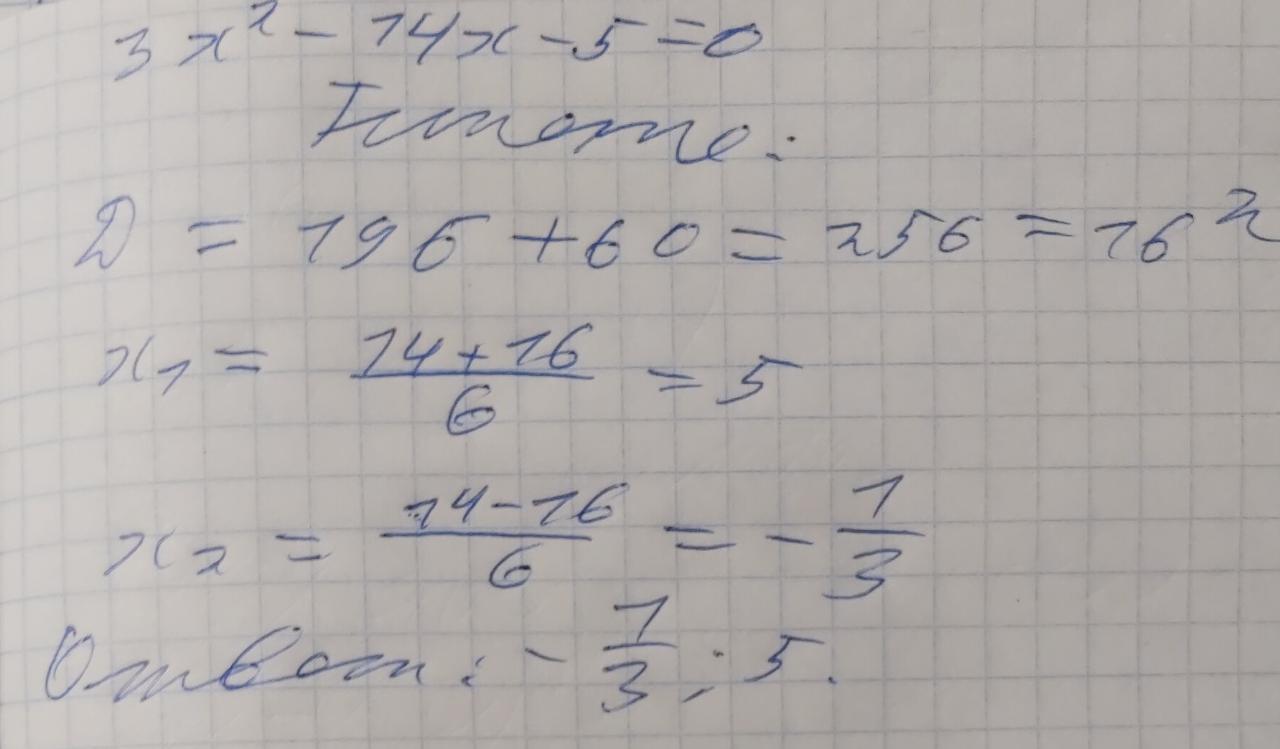 3x² - 14x - 5 = 0
D = 196 + 60 = 256 = 16²
x₁ = (14 + 16)/6 = 5
x₂ = (14 - 16)/6 = -1/3
Ответ: -1/3; 5.